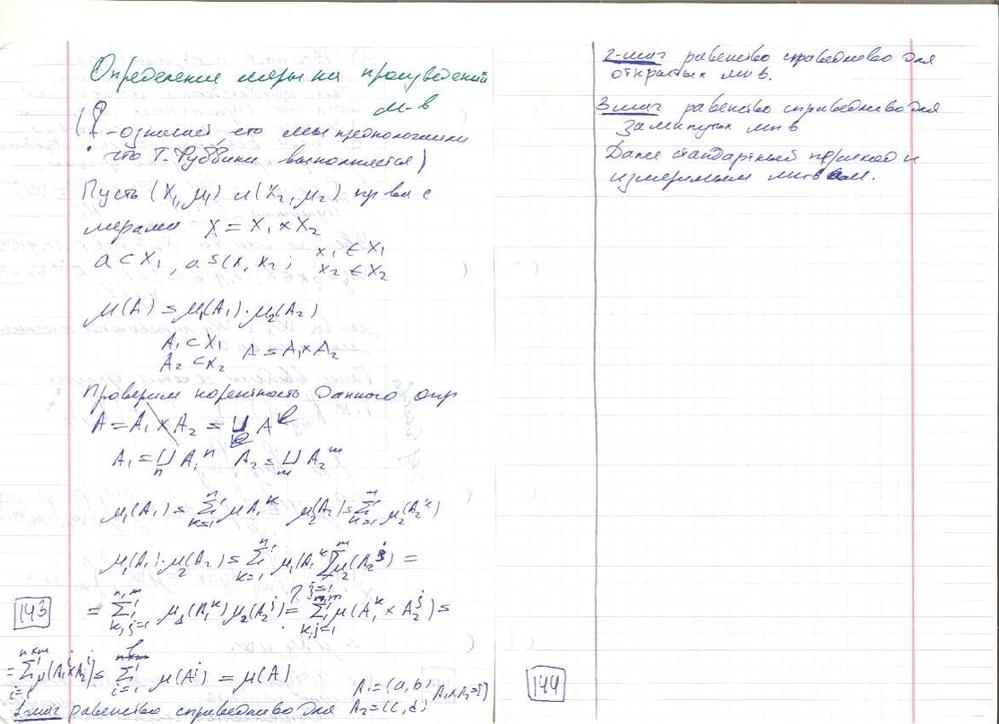 Определение меры на произведений
м-в
(? - означает, что мы предположили
что Т-Фуббини выполняется)
Пусть (X₁, μ₁) и (X₂, μ₂) пр-ва с
мерами X = X₁ × X₂
a ⊂ X₁, a = (x₁, x₂) ; x₁ ∈ X₁
x₂ ∈ X₂
μ(A) = μ₁(A₁) · μ₂(A₂)
A₁ ⊂ X₁
A₂ ⊂ X₂ A = A₁ × A₂
Проверим коректность данного опр
A = A₁ × A₂ = ⊔ₑ Aᵉ
A₁ = ⊔ₙ A₁ⁿ A₂ = ⊔ₘ A₂ᵐ
μ₁(A₁) = Σₖ₌₁ⁿ μA₁ᵏ μ₂(A₂) = Σₖ₌₁ⁿ μ₂(A₂ᵏ)
μ₁(A₁) · μ₂(A₂) = Σₖ₌₁ⁿ μ₁(A₁ᵏ) Σⱼ₌₁ᵐ μ₂(A₂ʲ) =
= Σₖ,ⱼ₌₁ⁿ,ᵐ μ₁(A₁ᵏ) μ₂(A₂ʲ) =? Σₖ,ⱼ₌₁ⁿ,ᵐ μ(A₁ᵏ × A₂ʲ) =
143
= Σᵢ₌₁ μ(A₁ⁱ × A₂ⁱ) = Σᵢ₌₁ μ(Aⁱ) = μ(A)
A₁ = (a, b) A₁×A₂=
1-шаг равенство справедливо для A₂ = (c, d)
2-шаг равенство справедливо для
открытых мн-в.
3 шаг равенство справедливо для
замкнутых мн-в
Далее стандартный переход и
измеримым мн-вам.
144